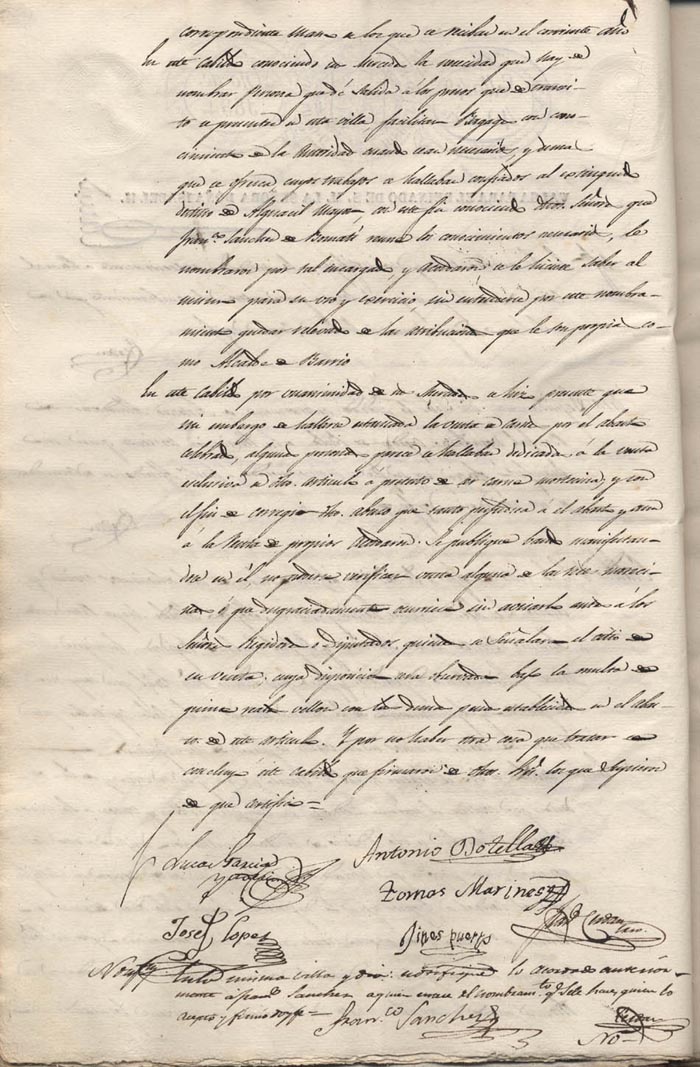 correspondiente man a los que se reciban en el corriente año
En este Cabildo conociendo sus mercedes la necesidad que hay de
nombrar persona que dé salida á los presos que de transi-
to se presenten en esta villa facilitar Bagages con cono-
cimiento de la Autoridad cuando sean necesarios y demas
que se ofrezca cuyos trabajos se hallaban confiados al estinguido
destino de Alguacil Mayor, en este dia conociendo dhos. Señores que
Franco. Sanchez de Bernabé reune los conocimientos necesarios, le
nombraron por tal encargado y acordaron se le hiciese saber al
mismo para su uso y exercicio, sin entenderse por este nombra-
miento quedar relevado de las atribuciones que le son propias co-
mo Alcalde de Barrio
En este Cabildo por unanimidad de sus Mercedes se hizo presente que
sin embargo de hallarse la venta de carne por el abasto
celebrado, algunas personas parece se hallaban dedicadas á la venta
esclusiva de dho. articulo á pretesto de ser carne mortecina, y con
el fin de corregir dho. abuso que tanto perjudica á el abasto y aun
á la Renta de propios acordaron: Se publique bando manifestan-
dose en él, no poderse verificar venta alguna de las reses morteci-
nas ó que desgraciadamente ocurriesen sin avisarlo antes á los
Señores Regidores o Diputados quienes se Señalaran el sitio de
su venta; cuya disposicion sea observada bajo la multa de
quince reales vellon con las demas penas establecidas en el abas-
to de este articulo. Y por no haber otra cosa que tratar se
concluyó este cabildo que firmaron de dhos. Sres. los que supieron
de que certifico =
Lucas Garcia
Antonio Botella
Tomas Marines
José Lopez
Gines puerto
Notifn. En la misma villa y dia: notifiqué lo acordado anterior-
mente á Franco. Sanchez á quien enteré el nombramto. q. se le hace, quien lo
acepto y firmo doy fe =
Franco. Sanchez